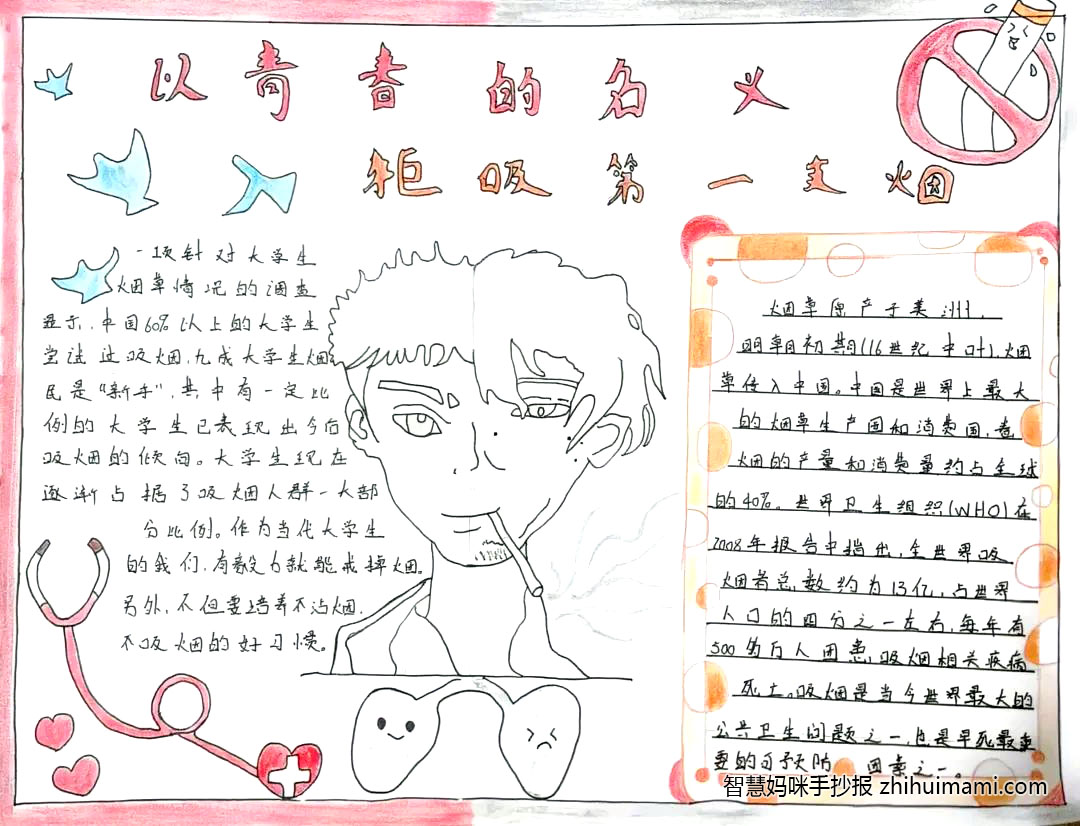 以青春的名义
拒吸第一支烟
一项针对大学生
烟草情况的调查
显示,中国60%以上的大学生
尝试过吸烟,九成大学生烟
民是“新手”,其中有一定比
例的大学生已表现出今后
吸烟的倾向。大学生现在
逐渐占据了吸烟人群一大部
分比例。作为当代大学生
的我们,有毅力就能戒掉烟。
另外,不但要培养不沾烟,
不吸烟的好习惯。
烟草原产于美洲,
明朝初期(16世纪中叶),烟
草传入中国。中国是世界上最大
的烟草生产国和消费国,卷
烟的产量和消费量约占全球
的40%。世界卫生组织(WHO)在
2008年报告中指出,全世界吸
烟者总数约为13亿,占世界
人口的四分之一左右,每年有
500多万人因患吸烟相关疾病
死亡。吸烟是当今世界最大的
公共卫生问题之一,也是早死最重
要的可预防因素之一。
智慧妈咪手抄报 zhihuimami.com